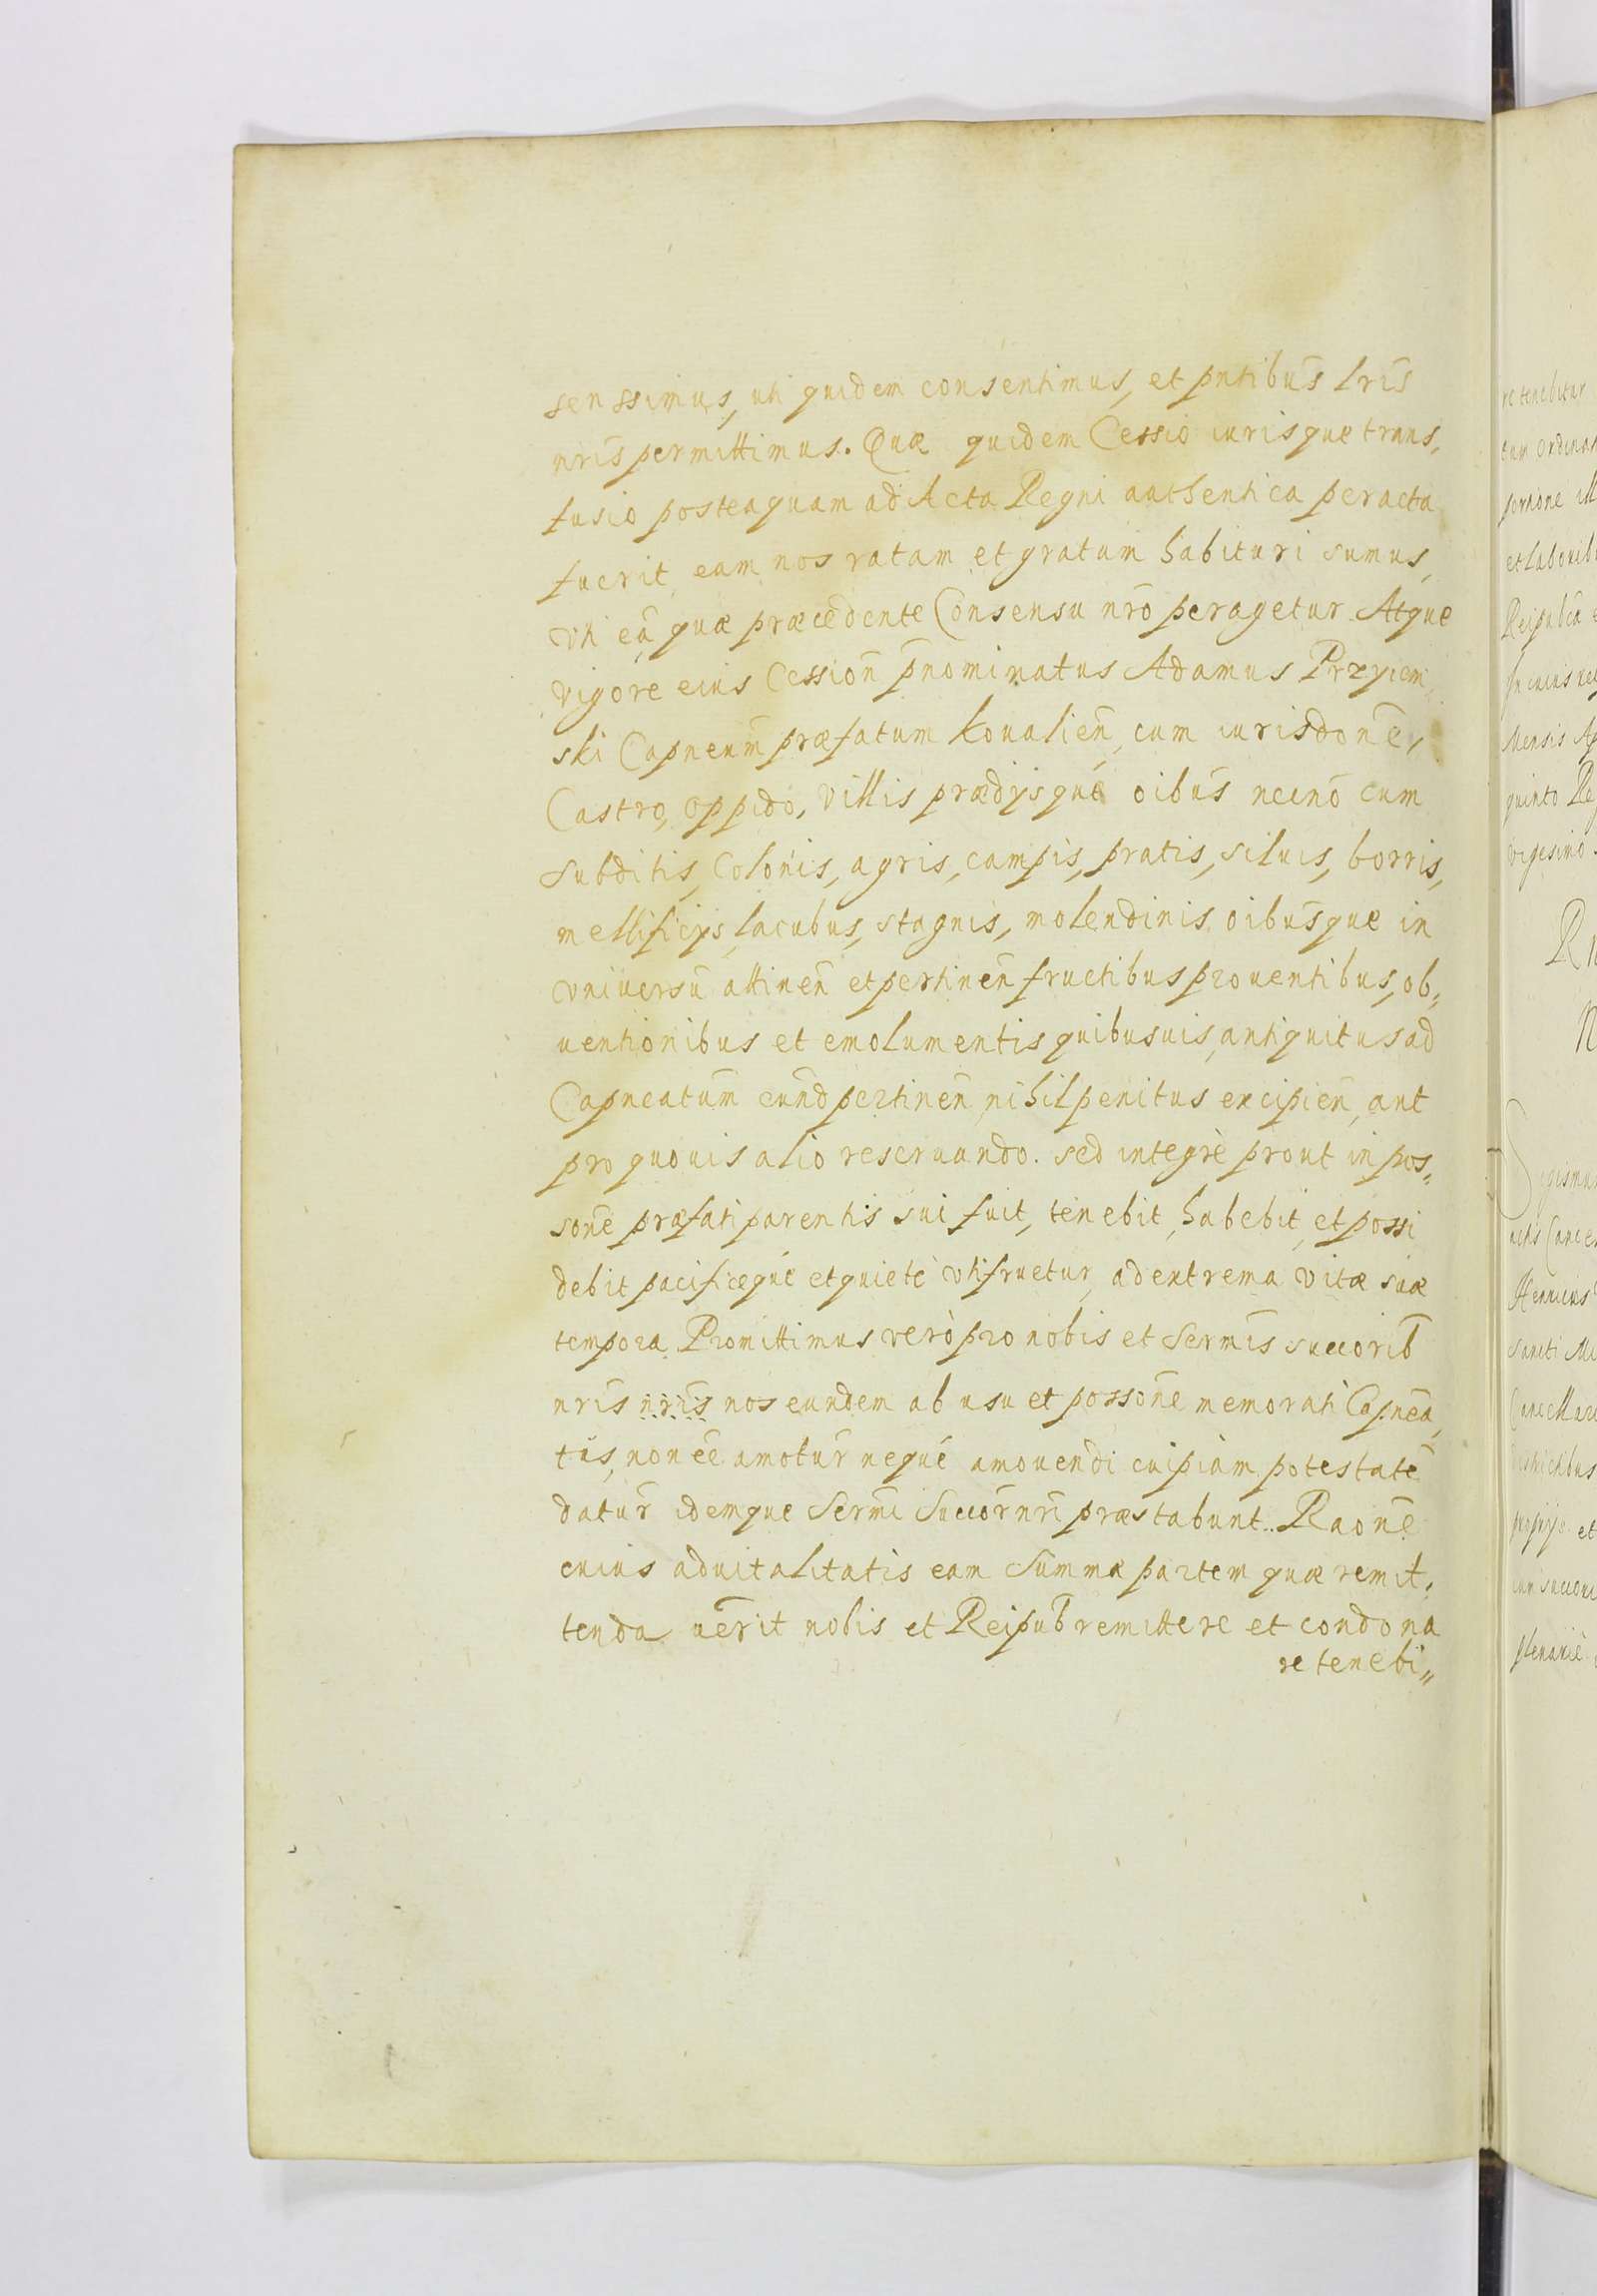 senssimus, uti quidem consentimus, et pntibus̄ lris̄
nris̄ permittimus. Quæ quidem Cessio iurisque trans,
fusio posteaquam ad Acta Regni authentica peracta
fuerit, eam nos ratam et gratam habituri sumus,
Vti eā quæ præcedente Consensu nrō peragetur. Atque
vigore eius Cession̄ p̄nominatus Adamus Przyiem,
ski Capneum̄ præfatum Koualien̄, cum iurisdonē,
Castro, oppido, villis prædijsqué oibus̄ necnō cum
subditis, Colonis, agris, campis, pratis, siluis, borris,
mellificijs, lacubus, stagnis, molendinis, oibus̄que in
vniuersū attinen̄ et pertinen̄ fructibus prouentibus, ob,,
uentionibus et emolumentis quibusuis, antiquitus ad
Capneatum̄ eun̄d pertinen̄, nihil penitus excipien̄, aut
pro quouis alio reseruando. sed integrè prout in pos,,
sonē præfati parentis sui fuit, tenebit, habebit, et possi
debit pacificequé et quietè vtifruetur, ad extrema vitæ suæ
tempora. Promittimus verò pro nobis et Sermis̄ succorib̄
nris̄ nris̄ nos eundem ab usu et possonē memorati Capneā,
tus, non eē amotur̄ nequé amouendi cuipiam potestatē
datur̄ idemque Sermī Succor̄ nrī præstabunt. Raonē
cuius aduitalitatis eam Summæ partem quæ remit,
tenda uer̄it nobis et Reipub̄ remittere et condona
re tenebi,,